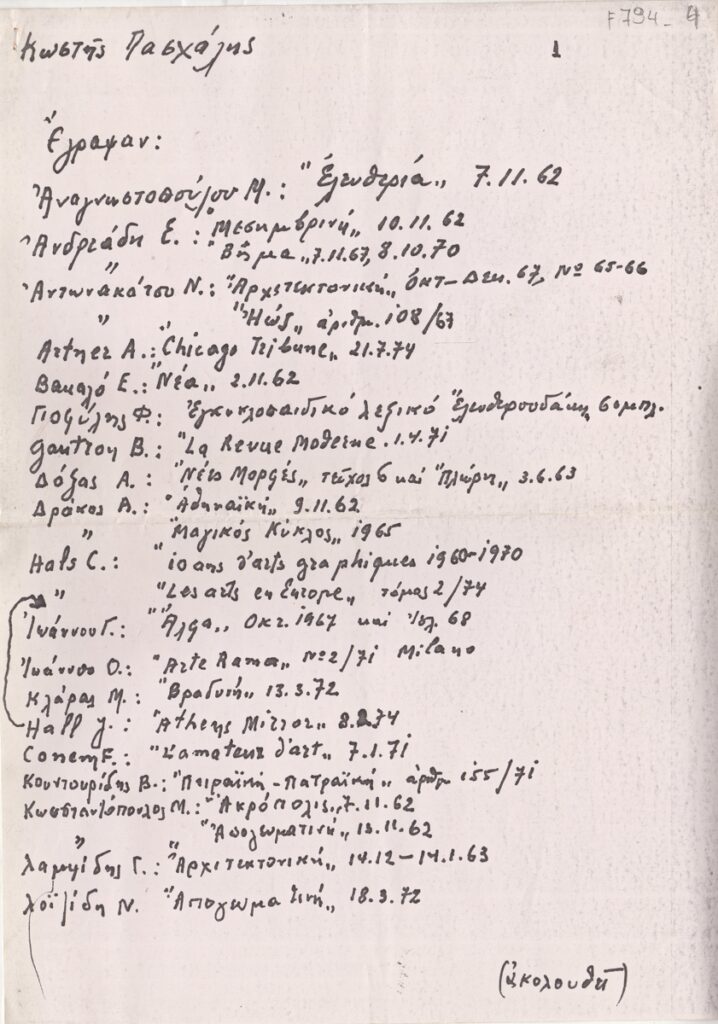 F794-4
Κωστής Πασχάλης
1
Έγραψαν:
Ἀναγνωστοπούλου Μ.: "Ἐλευθερία" 7.11.62
Ἀνδρεάδη Ε.: "Μεσημβρινή" 10.11.62
" "Βῆμα" 7.11.67, 8.10.70
Ἀντωνακάτου Ν.: "Ἀρχιτεκτονική" ὀκτ-Δεκ. 67, Νο 65-66
" "Ἠώς" ἀριθμ. 108/67
Artner A.: "Chicago Tribune" 21.7.74
Βακαλό Ε.: "Νέα" 2.11.62
Γιοφύλλης Φ.: Ἐγκυκλοπαιδικό λεξικό Ἐλευθερουδάκη συμπλ.
Gautron B.: "La Revue Moderne. 1.4.71
Δόξας Α.: "Νέες Μορφές" τεῦχος 6 καί "Πλώρη" 3.6.63
Δράκος Α.: "Ἀθηναϊκή" 9.11.62
" "Μαγικός Κύκλος" 1965
Hals C.: "10 ans d'arts graphiques 1960-1970
" "Les arts en Europe" τόμος 2/74
Ἰωάννου Γ.: "Ἄλφα" Οκτ. 1967 καί Ἰουλ. 68
Ἰωάννου Ο.: "Arte Rama" Νο 2/71 Milano
Κλάρας Μ.: "Βραδυνή" 13.3.72
Hall J.: "Athens Mirror" 8.2.74
F.: "L'amateur d'art" 7.1.71
Κουντουρίδης Β.: "Πειραϊκή-Πατραϊκή" ἀριθμ 155/71
Κωσταντόπουλος Μ.: "Ἀκρόπολις" 7.11.62
" "Ἀπογευματινή" 13.11.62
Λαμψίδης Γ.: "Ἀρχιτεκτονική" 14.12-14.1.63
Λοϊζίδη Ν. "Απογευματινή" 18.3.72
(ἀκολουθεῖ)